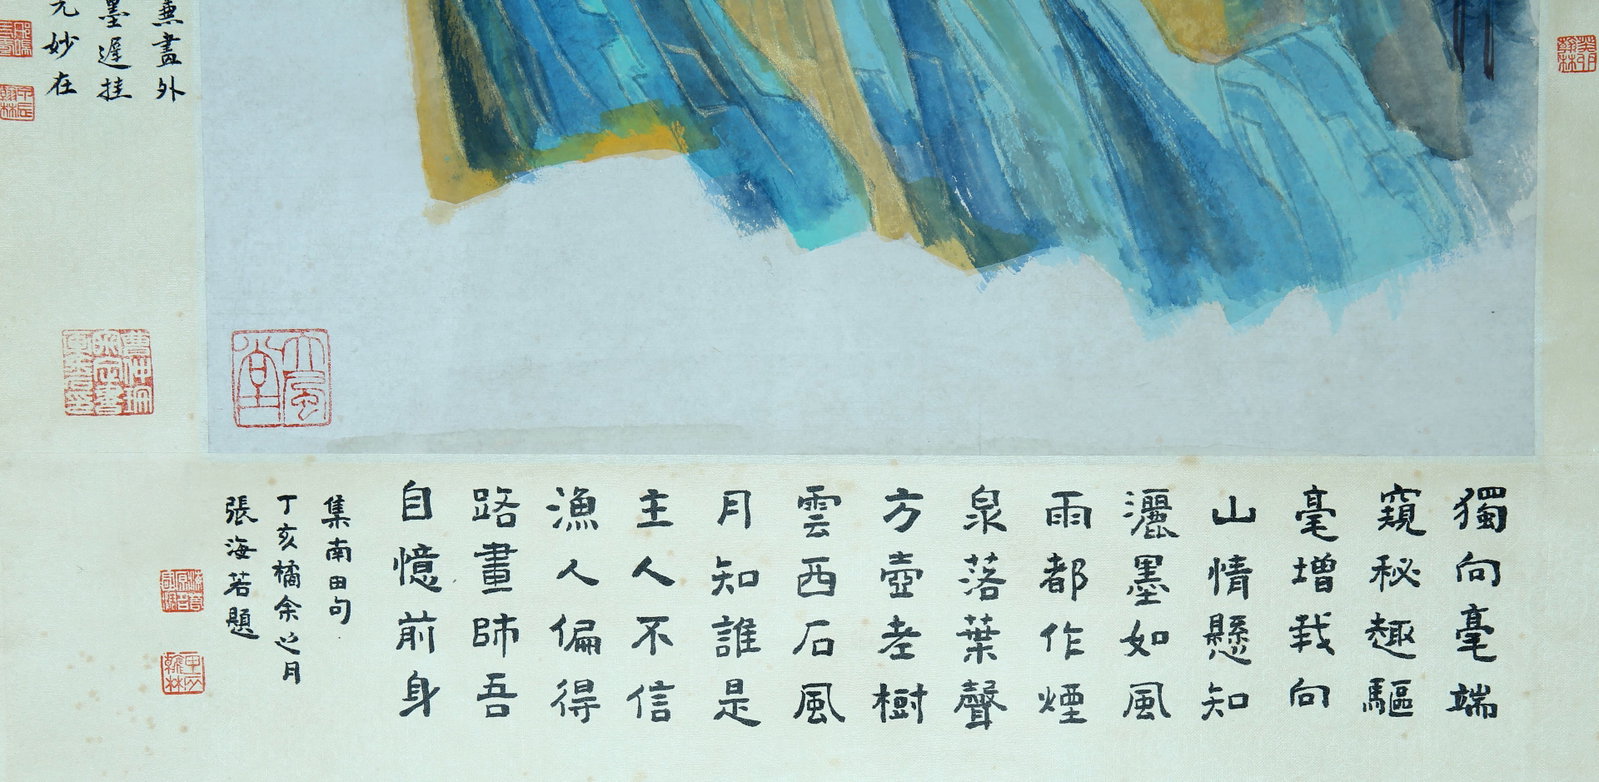 蕪畫外
墨遲挂
元妙在
大風堂
獨向毫端
窺秘趣驅
毫增我向
山情懸知
灑墨如風
雨都作煙
泉落葉聲
方壺老樹
雲西石風
月知誰是
主人不信
漁人偏得
路畫師吾
自憶前身
集南田句
丁亥橘余之月
張海若題